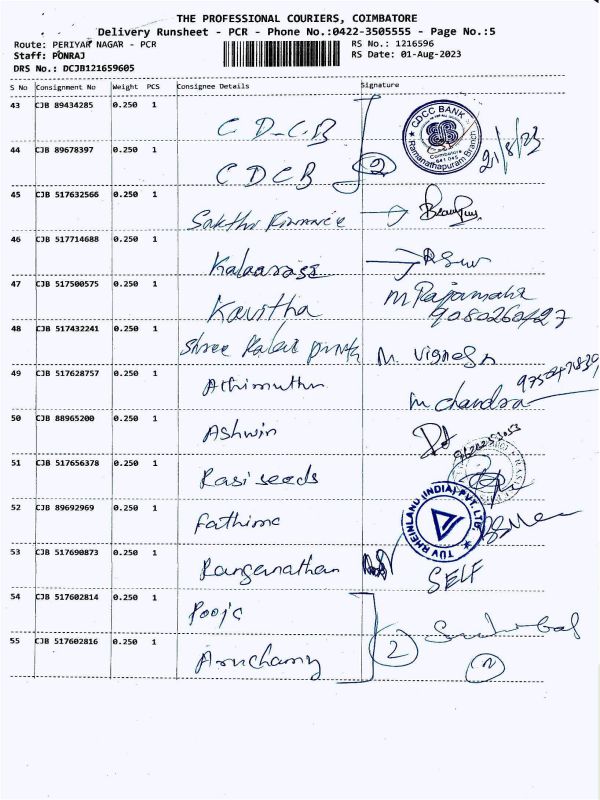 THE PROFESSIONAL COURIERS, COIMBATORE
Delivery Runsheet - PCR - Phone No.:0422-3505555 - Page No.:5
Route: PERIYAR NAGAR - PCR RS No.: 1216596
Staff: PONRAJ RS Date: 01-Aug-2023
DRS No.: DCJB121659605
S No Consignment No Weight PCS Consignee Details Signature
43 CJB 89434285 0.250 1 CDCB
CDCC BANK
Ramanathapuram Branch
Coimbatore
641 045
21/8/23
44 CJB 89678397 0.250 1 CDCB 2
45 CJB 517632566 0.250 1 Sakthi Finance
46 CJB 517714688 0.250 1 Kalaarasi
47 CJB 517500575 0.250 1 Kavitha M Rajamani
48 CJB 517432241 0.250 1 Shree M. Vignesh
49 CJB 517628757 0.250 1 Athimuthu M chandra
50 CJB 88965200 0.250 1 Ashwin
51 CJB 517656378 0.250 1 Rasi seeds
52 CJB 89692969 0.250 1 Fathima
TUV RHEINLAND (INDIA) PVT. LTD.
53 CJB 517690873 0.250 1 Ranganathan SELF
54 CJB 517602814 0.250 1 Pooja
55 CJB 517602816 0.250 1 Arunchamy 2